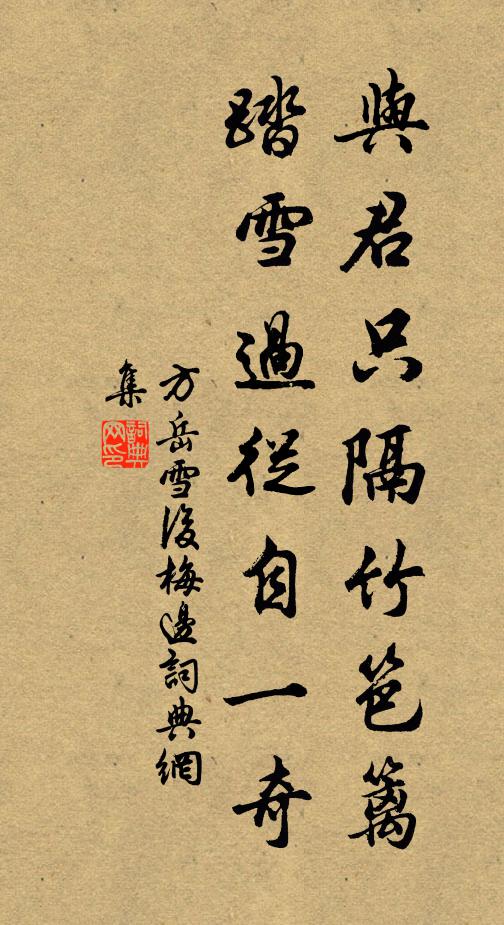 與君只隔竹笆籬
踏雪過從自一奇
方岳雪後梅邊詞典網
集
詞典網印